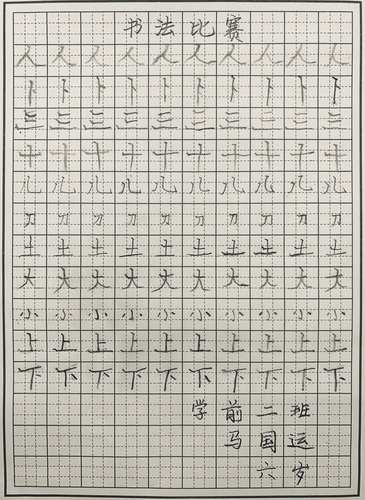 书法比赛
人人人人人人人人人人
卜卜卜卜卜卜卜卜卜卜
三三三三三三三三三三
十十十十十十十十十十
儿儿儿儿儿儿儿儿儿儿
刀刀刀刀刀刀刀刀刀刀
土土土土土土土土土土
大大大大大大大大大大
小小小小小小小小小小
上上上上上上上上上上
下下下下下下下下下下
学前二班
马国运
六岁